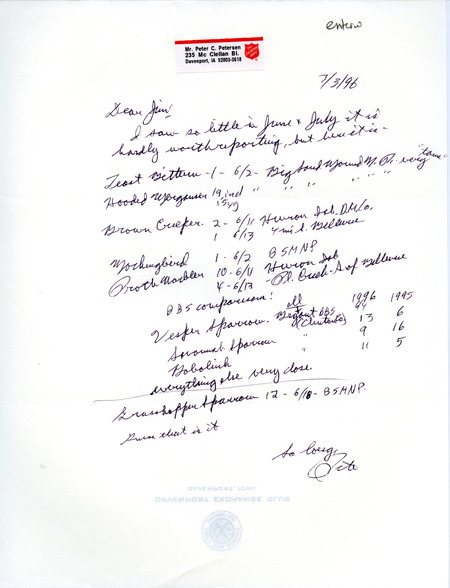 enters
Mr. Peter C. Petersen
235 Mc Clellan Bl.
Davenport, IA 52803-3618
7/3/96
Dear Jim:
I saw so little in June & July it is
hardly worth reporting, but here it is -
Least Bittern - 1 - 6/2 - Big Sand Mound N. Pr.
Hooded Merganser 19 ind " " " " "
Brown Creeper. 2 - 6/11 Huron Isl. D.M.Co.
1 6/13 4 mi S. Bellevue
Mockingbird 1 - 6/2 BSMNP
Proth Warbler 10 - 6/11 Huron Isl
4 - 6/13 - Pl. Creek - S of Bellevue
BBS comparison: all 1996 1995
Vesper Sparrow - Bryant BBS 13 6
(Clinton Co)
Savannah Sparrow " 9 16
Bobolink " 11 5
everything else very close
Grasshopper Sparrow 12 - 6/10 - BSMNP.
Guess that is it
So long,
Pete
DAVENPORT, IOWA
DAVENPORT EXCHANGE CLUB